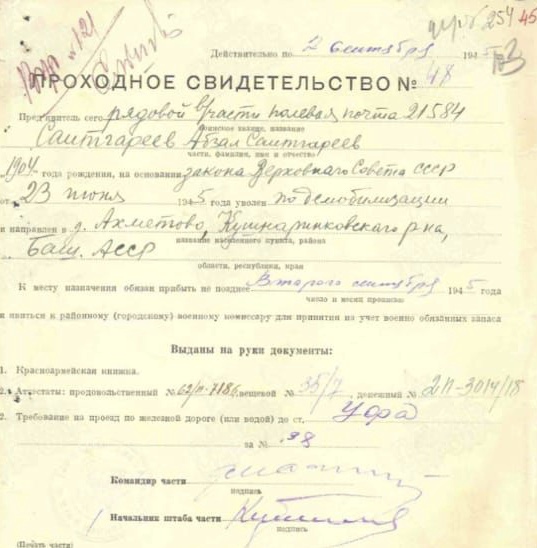 254 45
Действительно по 2 сентября 1945
ПРОХОДНОЕ СВИДЕТЕЛЬСТВО № 48
Пред'явитель сего рядовой в/части полевая почта 21584
воинское звание, название
Саитгареев Абзал Саитгареев
части, фамилия, имя и отчество
1904 года рождения, на основании закона Верховного Совета СССР
от 23 июня 1945 года уволен по демобилизации
и направлен в д. Ахметово, Кушнаринковского р-на,
название населенного пункта, района
Баш. АССР
области, республики, края
К месту назначения обязан прибыть не позднее Второго сентября 1945 года
число и месяц прописью
и явиться к районному (городскому) военному комиссару для принятия на учет военно обязанных запаса
Выданы на руки документы:
1. Красноармейская книжка.
2. Аттестаты: продовольственный № 62/п-7186, вещевой № 35/7, денежный № 2П-3014/18
2. Требование на проезд по железной дороге (или водой) до ст. Уфа
за № 98
Командир части
подпись
Начальник штаба части
подпись
(Печать части)